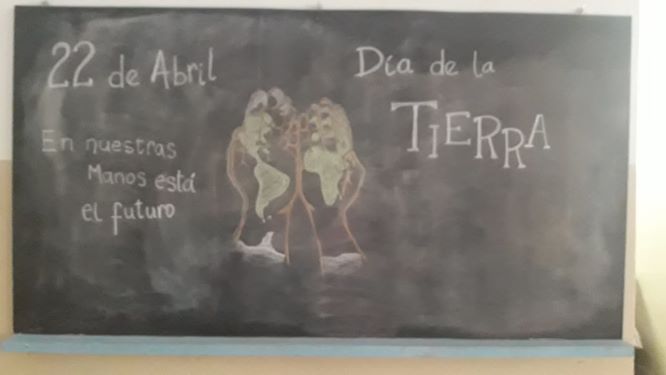 22 de Abril
En nuestras
Manos está
el futuro
Día de la
TIERRA